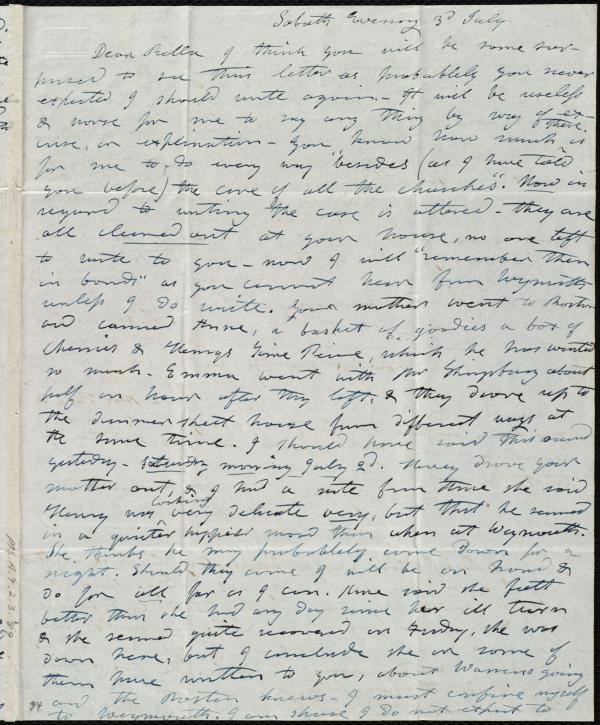 Sabath Evening 3d July
Dear Bella I think you will be some sur-
prised to see this letter as probablely you never
expected I should write again - It will be useless
& worse for me to say any thing by way of ex-
cuse, or explanation - You know how much there is
for me to do every way "besides (as I have told
you before) the care of all the churches". Now in
regard to writing the case is altered - they are
all cleaned out at your house, no one left
to write to you - now I will "remember them
in bonds" as you cannot hear from Weymouth
unless I do write. Your mother went to Boston
and carried Anne, a basket of goodies a box of
cherries & Henrys Time Piece, which he has wanted
so much. Emma went with Mr Kingsbury about
half an hour after they left, & they drove up to
the Summer street house from different ways at
the same time. I should have said this occured
yesterday - Saturday morning July 2d. Henry drove your
mother out, & I had a note from Anne she said
Henry was looking very delicate very, but that he seemed
in a quieter happier mood than when at Weymouth.
She thinks he may probablely come down for a
night. Should they come I will be on hand &
do for all far as I can. Anne said she felt
better than she had any day since her ill turn
& she seemed quite recovered on Friday, she was
down here, but I conclude she or some of
them have written to you, about Warrens going
and the Boston knows - I must confine myself
to Weymouth. I am sure I do not expect to
Ms.A.9.2.3.89
84